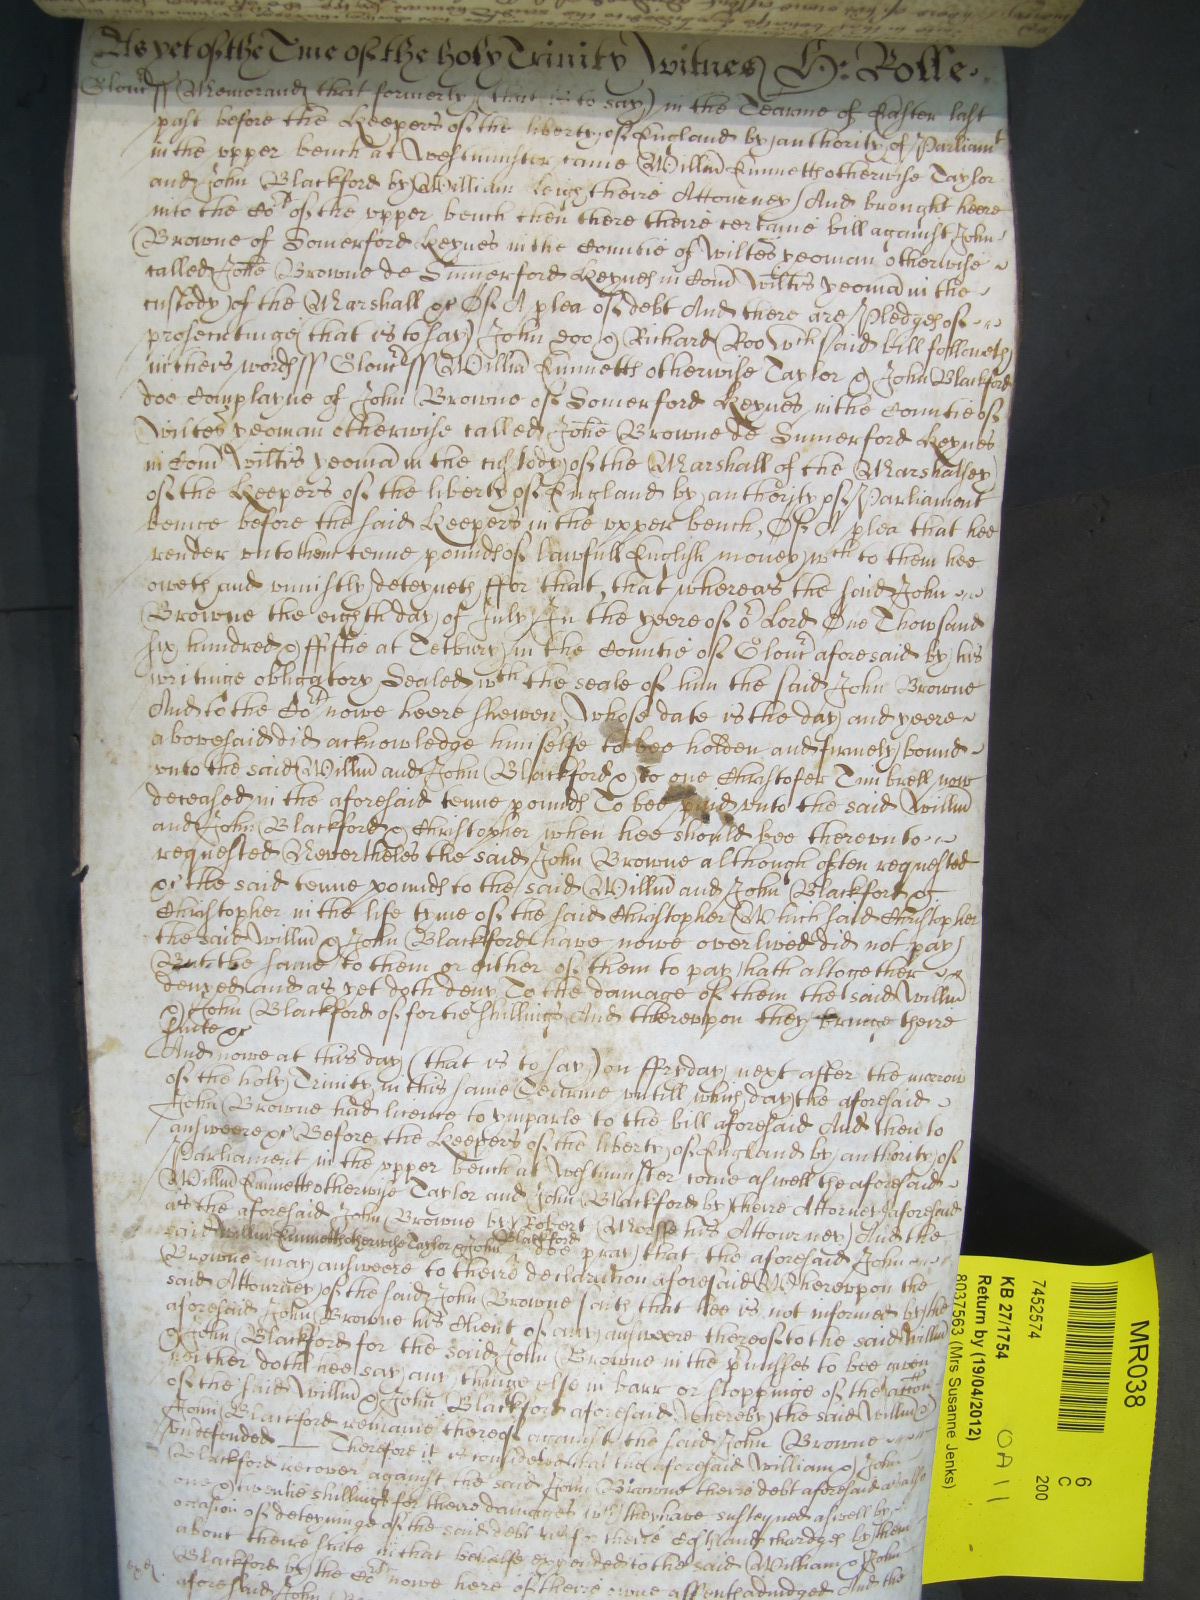 As yet of the Tme of the holy Trinity Witnes H: Rolle
Glouc ss Memorand that formerly (that is to say) in the Tearme of Easter last
past before the Keepers of the liberty of England by authority of Parliamt
in the upper bench at Westminster came Willm Emmett otherwise Taylor
and John Blackford by William Leigh theire Attourney And brought heere
into the Cort of the upper bench then there theire certaine bill against John
Browne of Somerford Keynes in the Countie of Wiltes yeoman otherwise
called John Browne de Sumerford Keynes in Com Wiltes yeoman in the
custody of the Marshall &c Of A plea of debt And there are Pledges of
prosecutinge (that is to say) John Doo & Richard Roo wch said bill followeth
in theis words ss Glouc ss Willm Emmett otherwise Taylor & John Blackford
doe Complayne of John Browne of Somerford Keynes in the Countie of
Wiltes yeoman otherwise called John Browne de Sumerford Keynes
in Com Wiltes yeoman in the custody of the Marshall of the Marshalsey
of the Keepers of the liberty of England by authority of Parliament
beinge before the said Keepers in the upper bench, Of A plea that hee
render unto them tenne pounds of lawfull English money wch to them hee
oweth and uniustly deteyneth ffor that, that whereas the said John
Browne the eighth day of July In the yeere of or Lord One Thowsand
six hundred & ffiftie at Tetbury in the Countie of Glouc aforesaid by his
writinge obligatory Sealed wth the seale of him the said John Browne
And to the Cort nowe heere shewen, whose date is the day and yeere
abovesaid did acknowledge himselfe to bee holden and firmely bound
unto the said Willm and John Blackford & to one Christofer Timbrell now
deceased in the aforesaid tenne pounds To bee paid unto the said Willm
and John Blackford & Christopher when hee should bee thereunto
requested Nevertheles the said John Browne although often requested
&c the said tenne pounds to the said Willm and John Blackford &
Christopher in the life tyme of the said Christopher (Which said Christopher
the said Willm & John Blackford have nowe overlived) did not pay
But the same to them or either of them to pay hath altogether
denyed and as yet doth deny To the damage of them the said Willm
& John Blackford of fortie shillings And thereupon they bringe theire
suite &c
And nowe at this day (that is to say) on ffryday next after the morrow
of the holy Trinity in this same Tearme untill which day the aforesaid
John Browne had licence to ymparle to the bill aforesaid And then to
answeere &c Before the Keepers of the liberty of England by authority of
Parliament in the upper bench at Westminster come aswell the aforesaid
Willm Emmett otherwise Taylor and John Blackford by theire Attorney aforesaid
as the aforesaid John Browne by Robert his Attourney And the
said Willm Emmett otherwise Taylor & John Blackford doe pray that the aforesaid John
Browne may answeere to theire declaration aforesaid Whereupon the
said Attourney of the said John Browne saith that hee is not informed by the
aforesaid John Browne his Client of any answeere thereof to the said Willm
& John Blackford for the said John Browne in the pmisses to bee given
neither doth hee say any thinge else in barr or stoppinge of the accon
of the said Willm & John Blackford aforesaid whereby the said Willm &
John Blackford remaine thereof against the said John Browne
undefended Therefore it is considered that the aforesaid William & John
Blackford recover against the said John Browne theire debt aforesaid
one & twentie shillings for theire damages wch they have susteyned aswell by
occasion of deteyninge of the said debt as for theire Costs and chardges by them
about theire suite in that behalfe expended to the said William & John
Blackford by the Cort nowe here of theire owne assent adiudged And the
aforesaid John
MR038
6
C
200
7452574
KB 27/1754
OA 11
Return by (19/04/2012)
8037563 (Mrs Susanne Jenks)